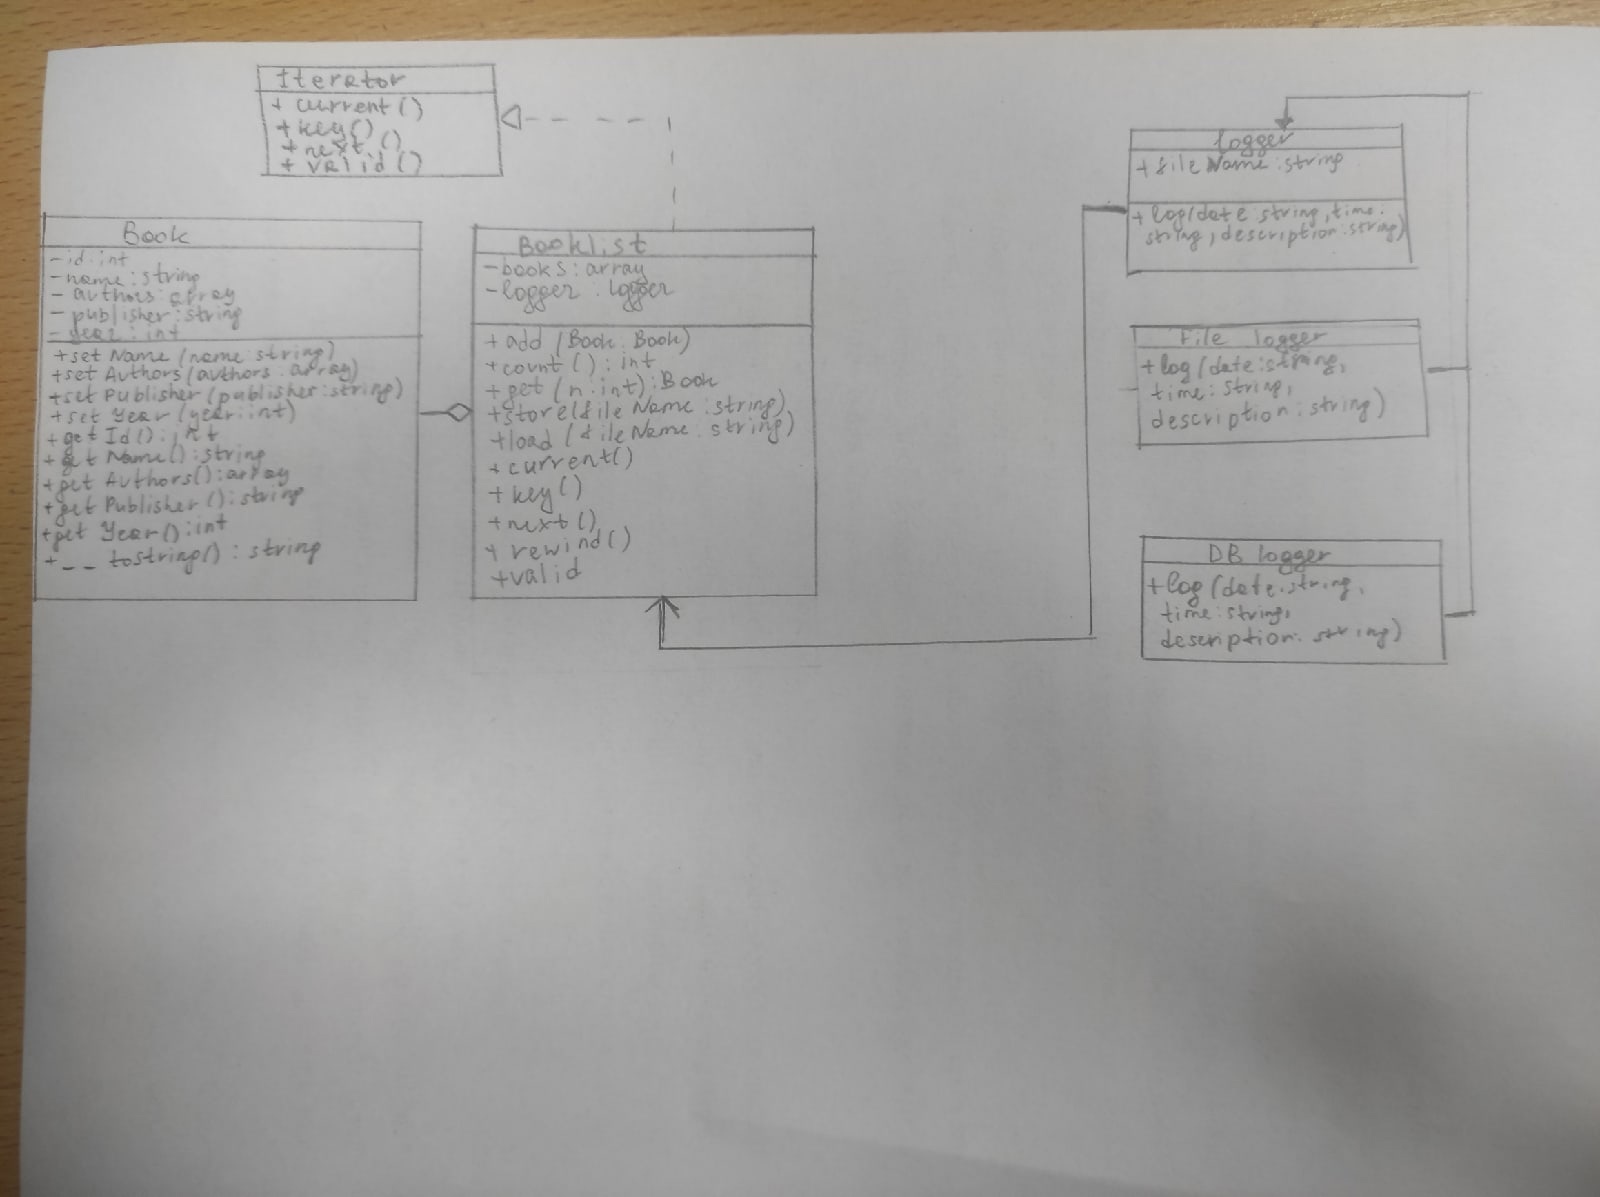 Iterator
+ current()
+ key()
+ next()
+ valid()
Book
- id: int
- name: string
- authors: array
- publisher: string
- year: int
+ set Name (name: string)
+ set Authors (authors: array)
+ set Publisher (publisher: string)
+ set Year (year: int)
+ get Id(): int
+ get Name(): string
+ get Authors(): array
+ get Publisher(): string
+ get Year(): int
+ __ tostring(): string
Booklist
- books: array
- logger: logger
+ add (Book: Book)
+ count(): int
+ get (n: int): Book
+ store(file Name: string)
+ load (file Name: string)
+ current()
+ key()
+ next()
+ rewind()
+ valid
logger
+ file Name: string
+ log(date: string, time:
string, description: string)
File logger
+ log(date: string,
time: string,
description: string)
DB logger
+ log(date: string,
time: string,
description: string)